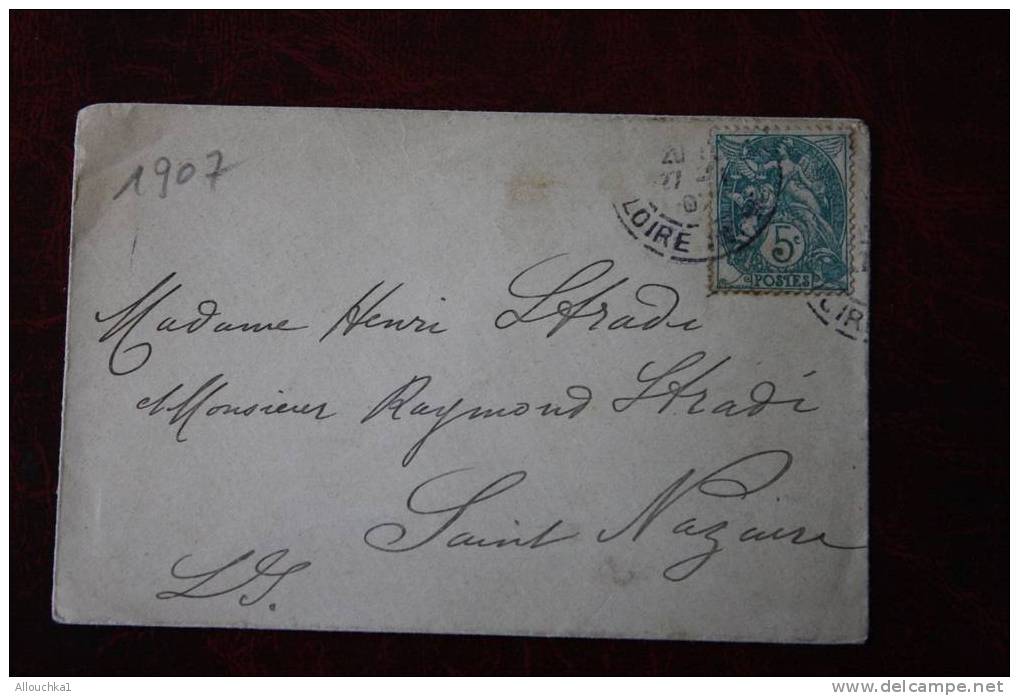 1907
20
27
07
LOIRE
5c
POSTES
Madame Henri Stradi
et Monsieur Raymond Stradi
Saint Nazaire
L.I.
Allouchka1
http://www.delcampe.net